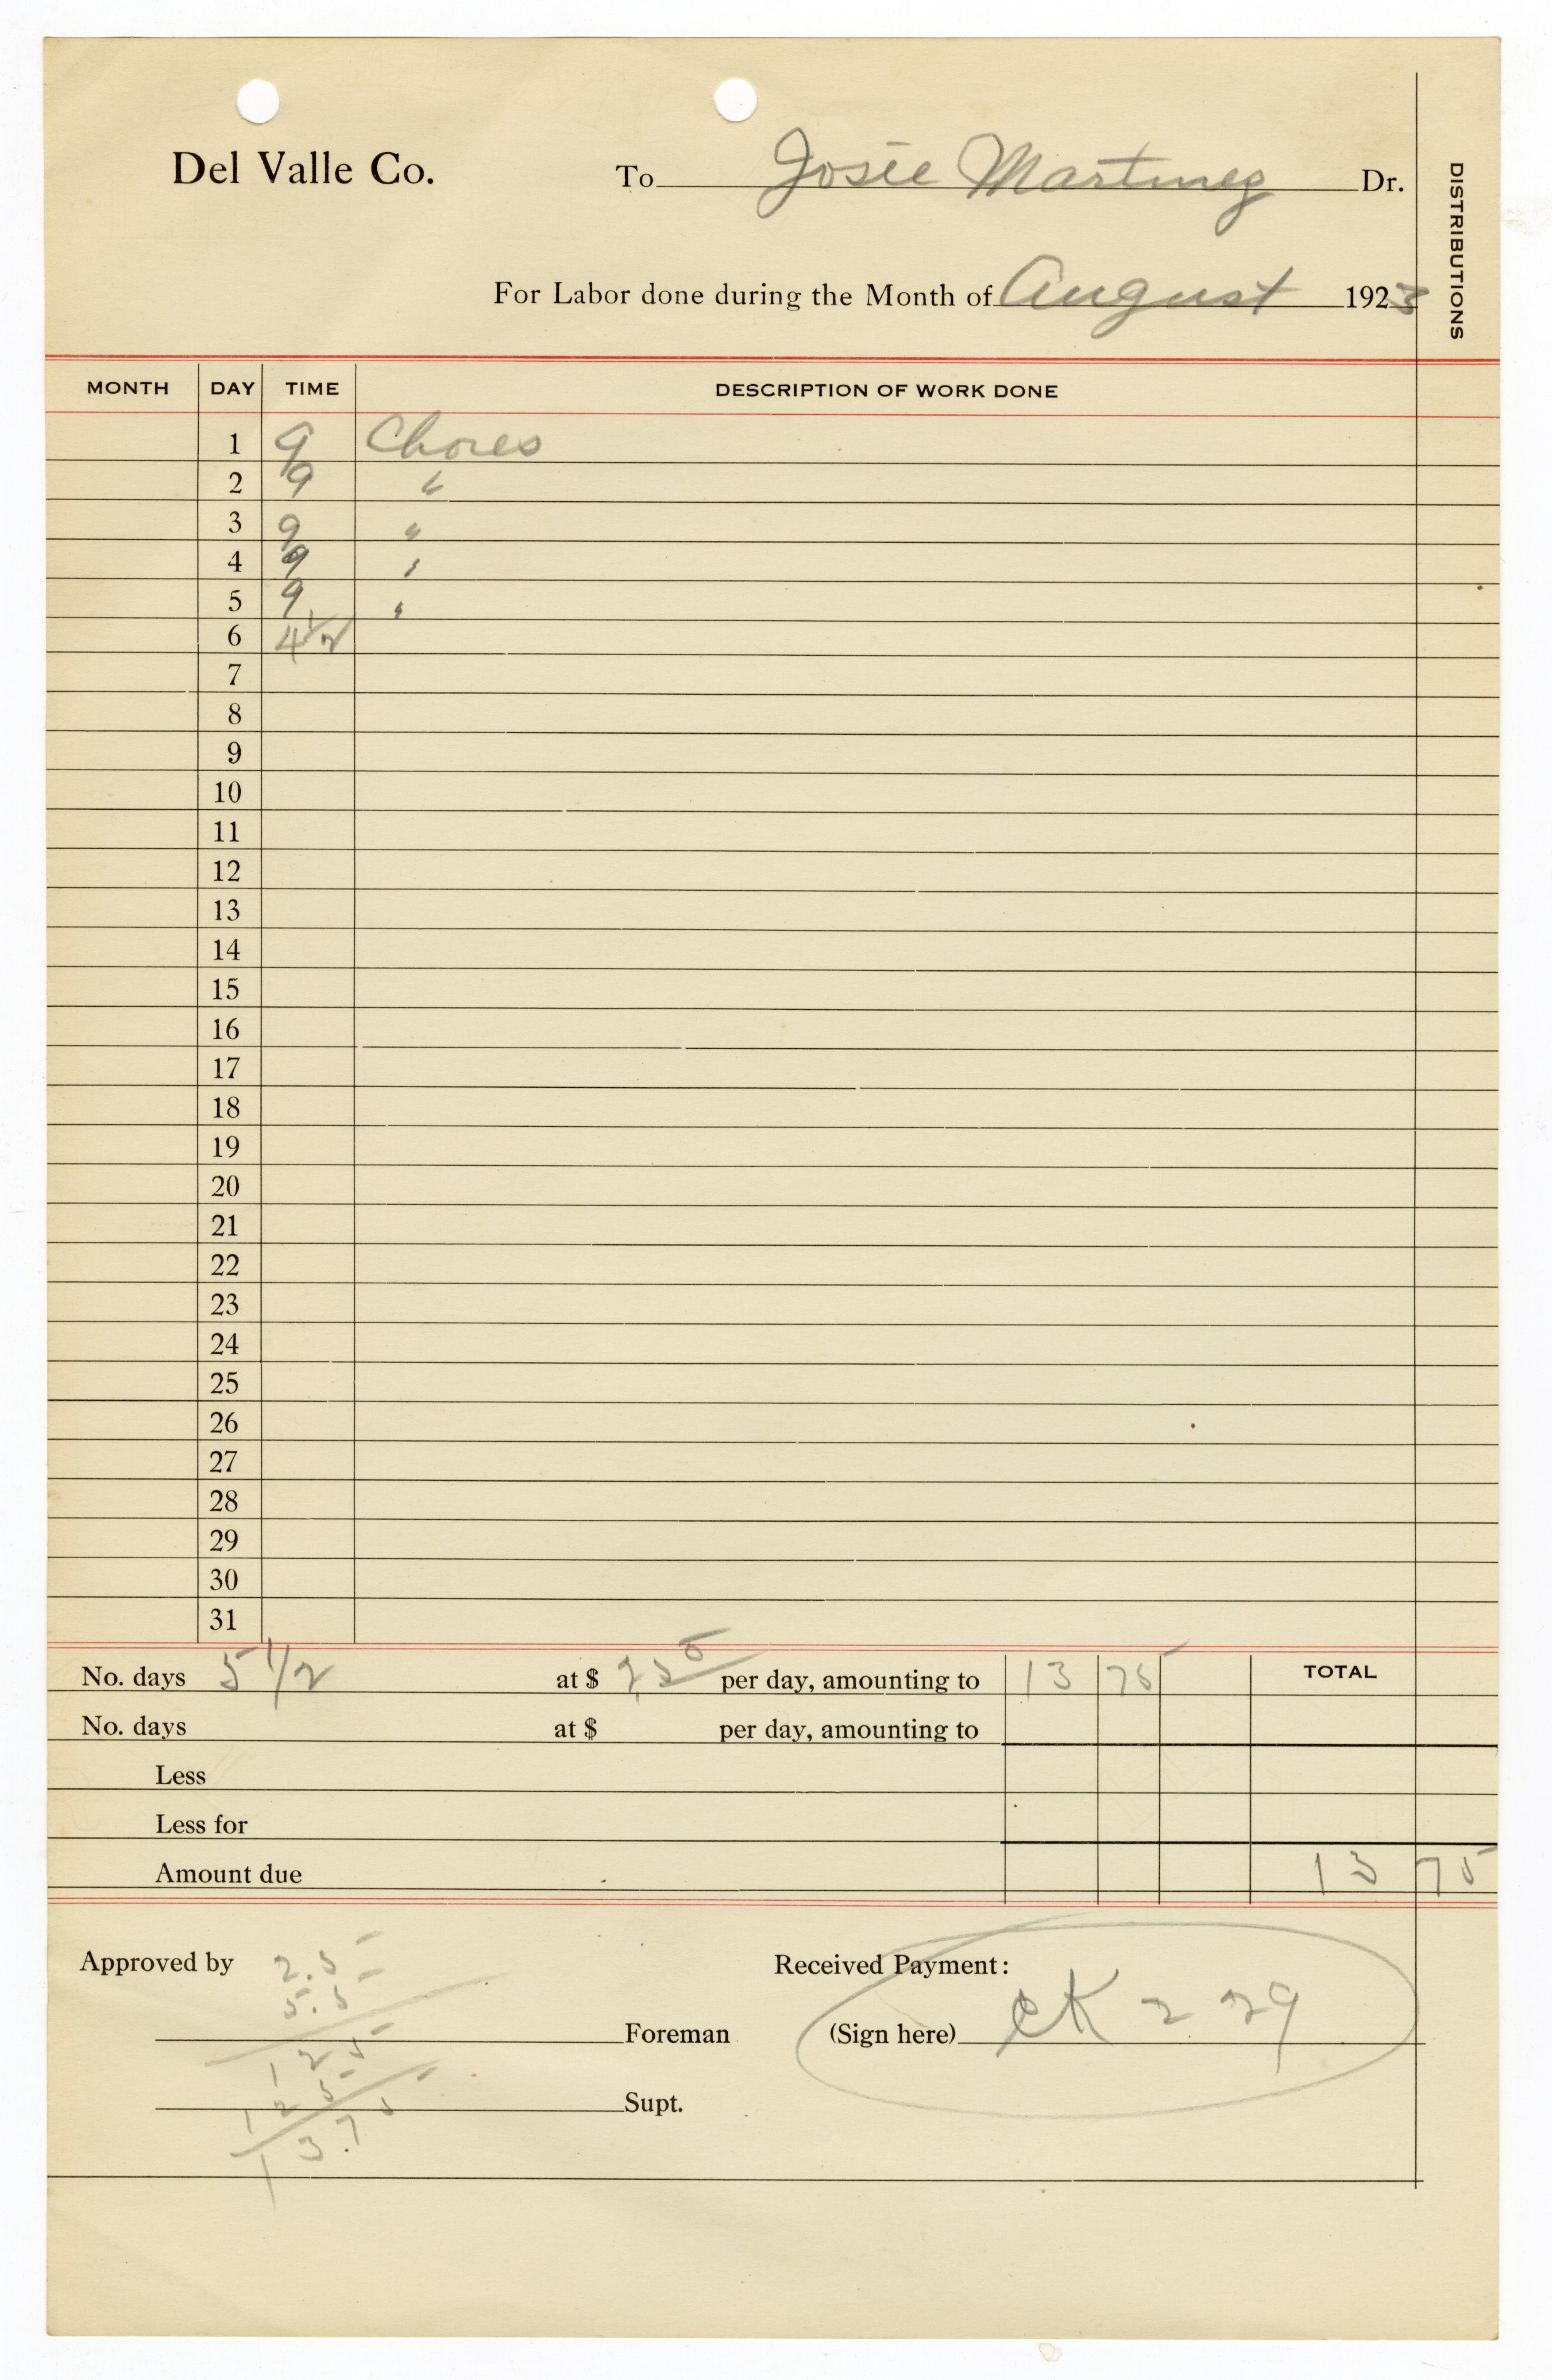 Del Valle Co. To Josie Martinez Dr.
DISTRIBUTIONS
For Labor done during the Month of August 1923
MONTH DAY TIME DESCRIPTION OF WORK DONE
1 9 Chores
2 9 "
3 9 "
4 9 "
5 9 "
6 4 1/2
7
8
9
10
11
12
13
14
15
16
17
18
19
20
21
22
23
24
25
26
27
28
29
30
31
No. days 5 1/2 at $ 2.50 per day, amounting to 13 75 TOTAL
No. days at $ per day, amounting to
Less
Less for
Amount due 13 75
Approved by Received Payment:
2.5
5.5
Foreman (Sign here) CK 229
125
125
Supt.
13.75